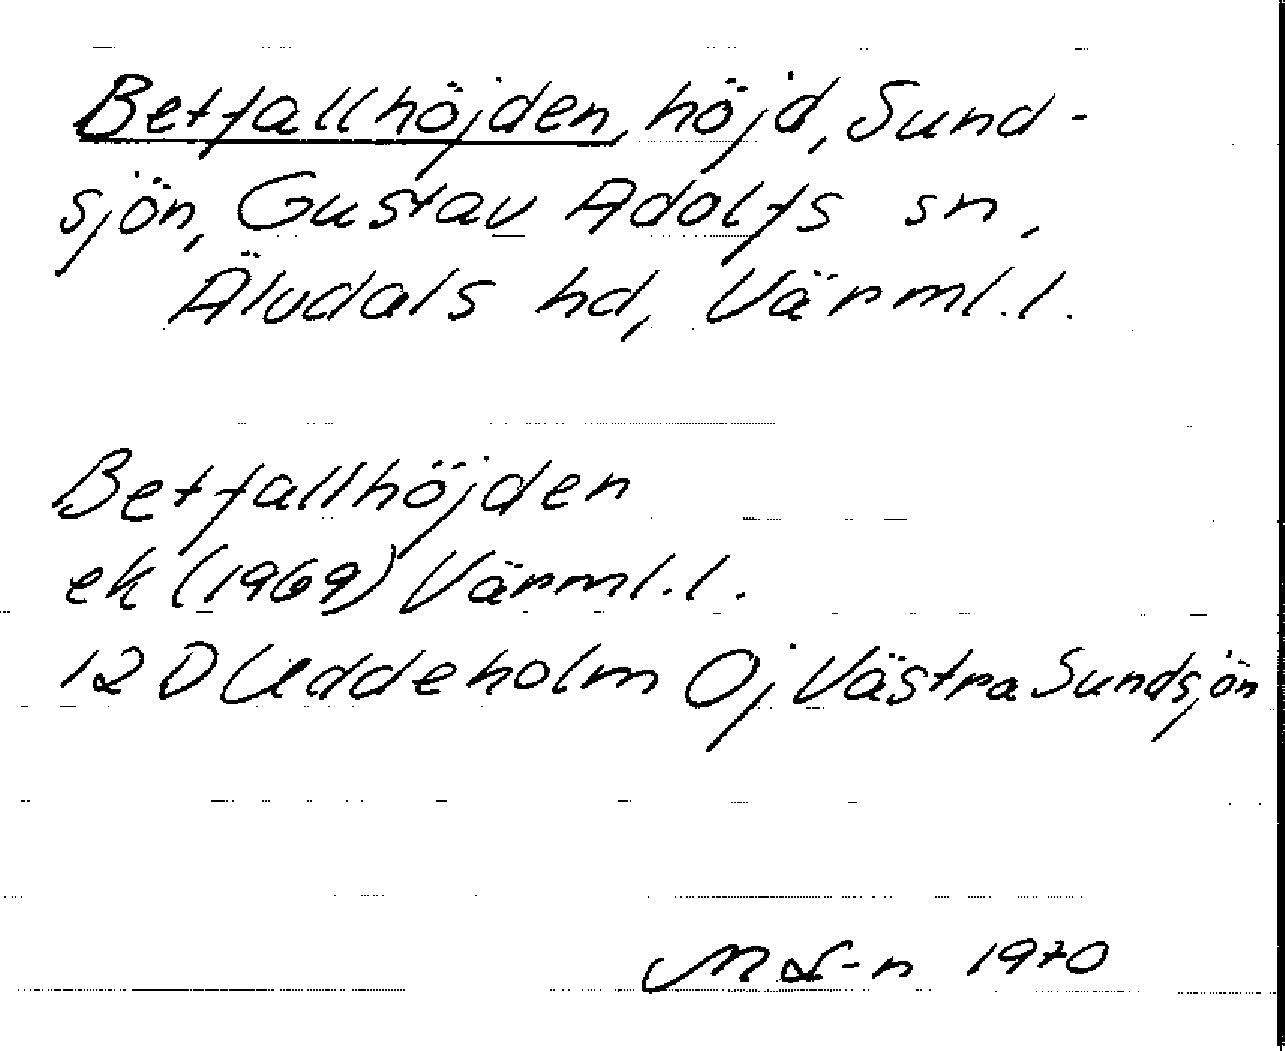 Betfallhöjden, höjd, Sund-
sjön, Gustav Adolfs sn,
Älvdals hd, Värml.l.
Betfallhöjden
ek (1969) Värml.l.
12 D Uddeholm Oj Västra Sundsjön
M L-n 1970